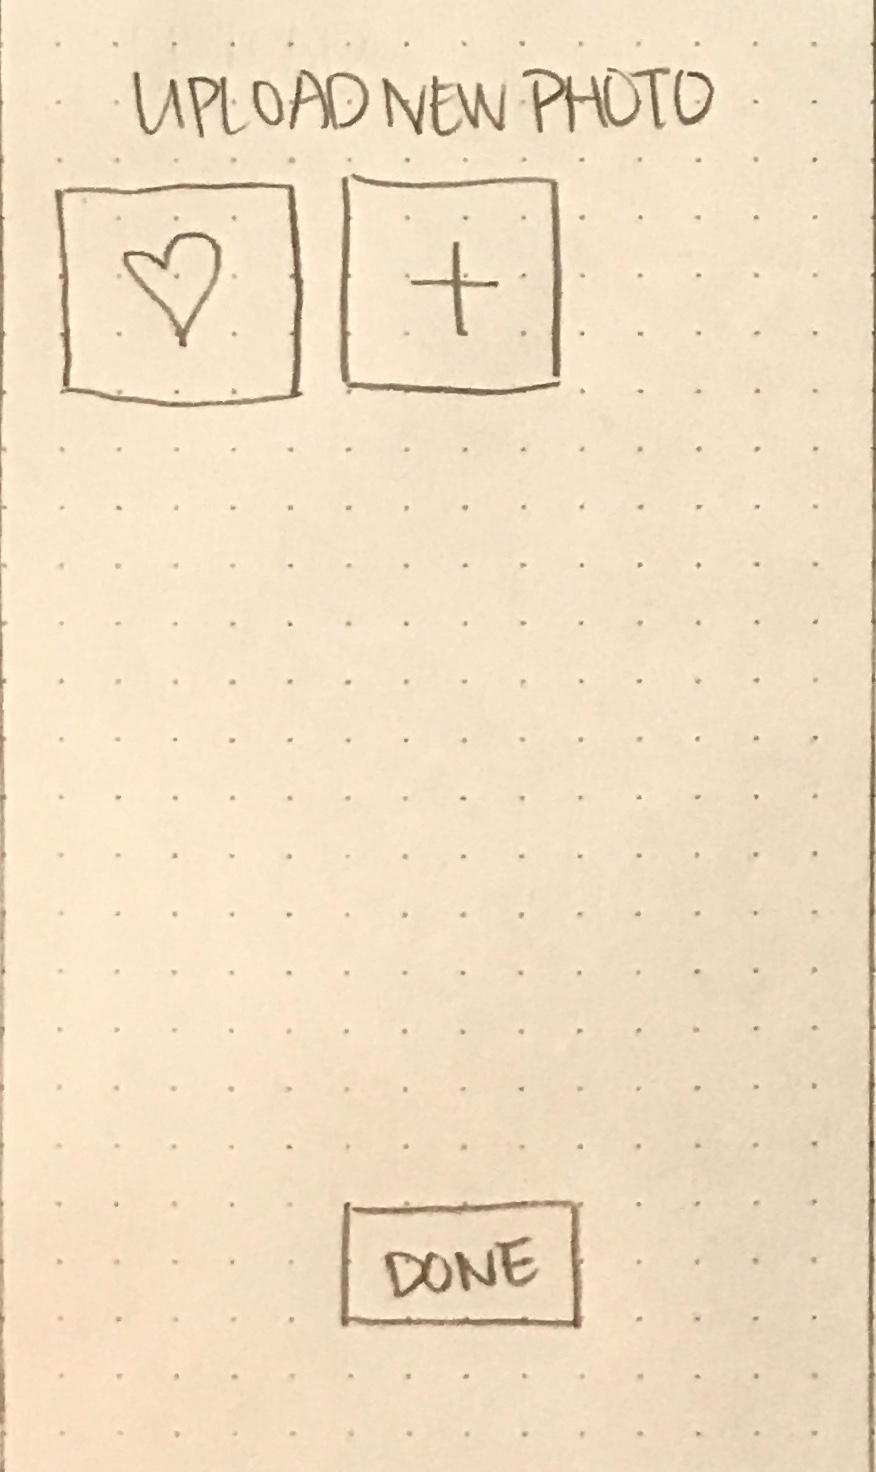 UPLOAD NEW PHOTO
DONE